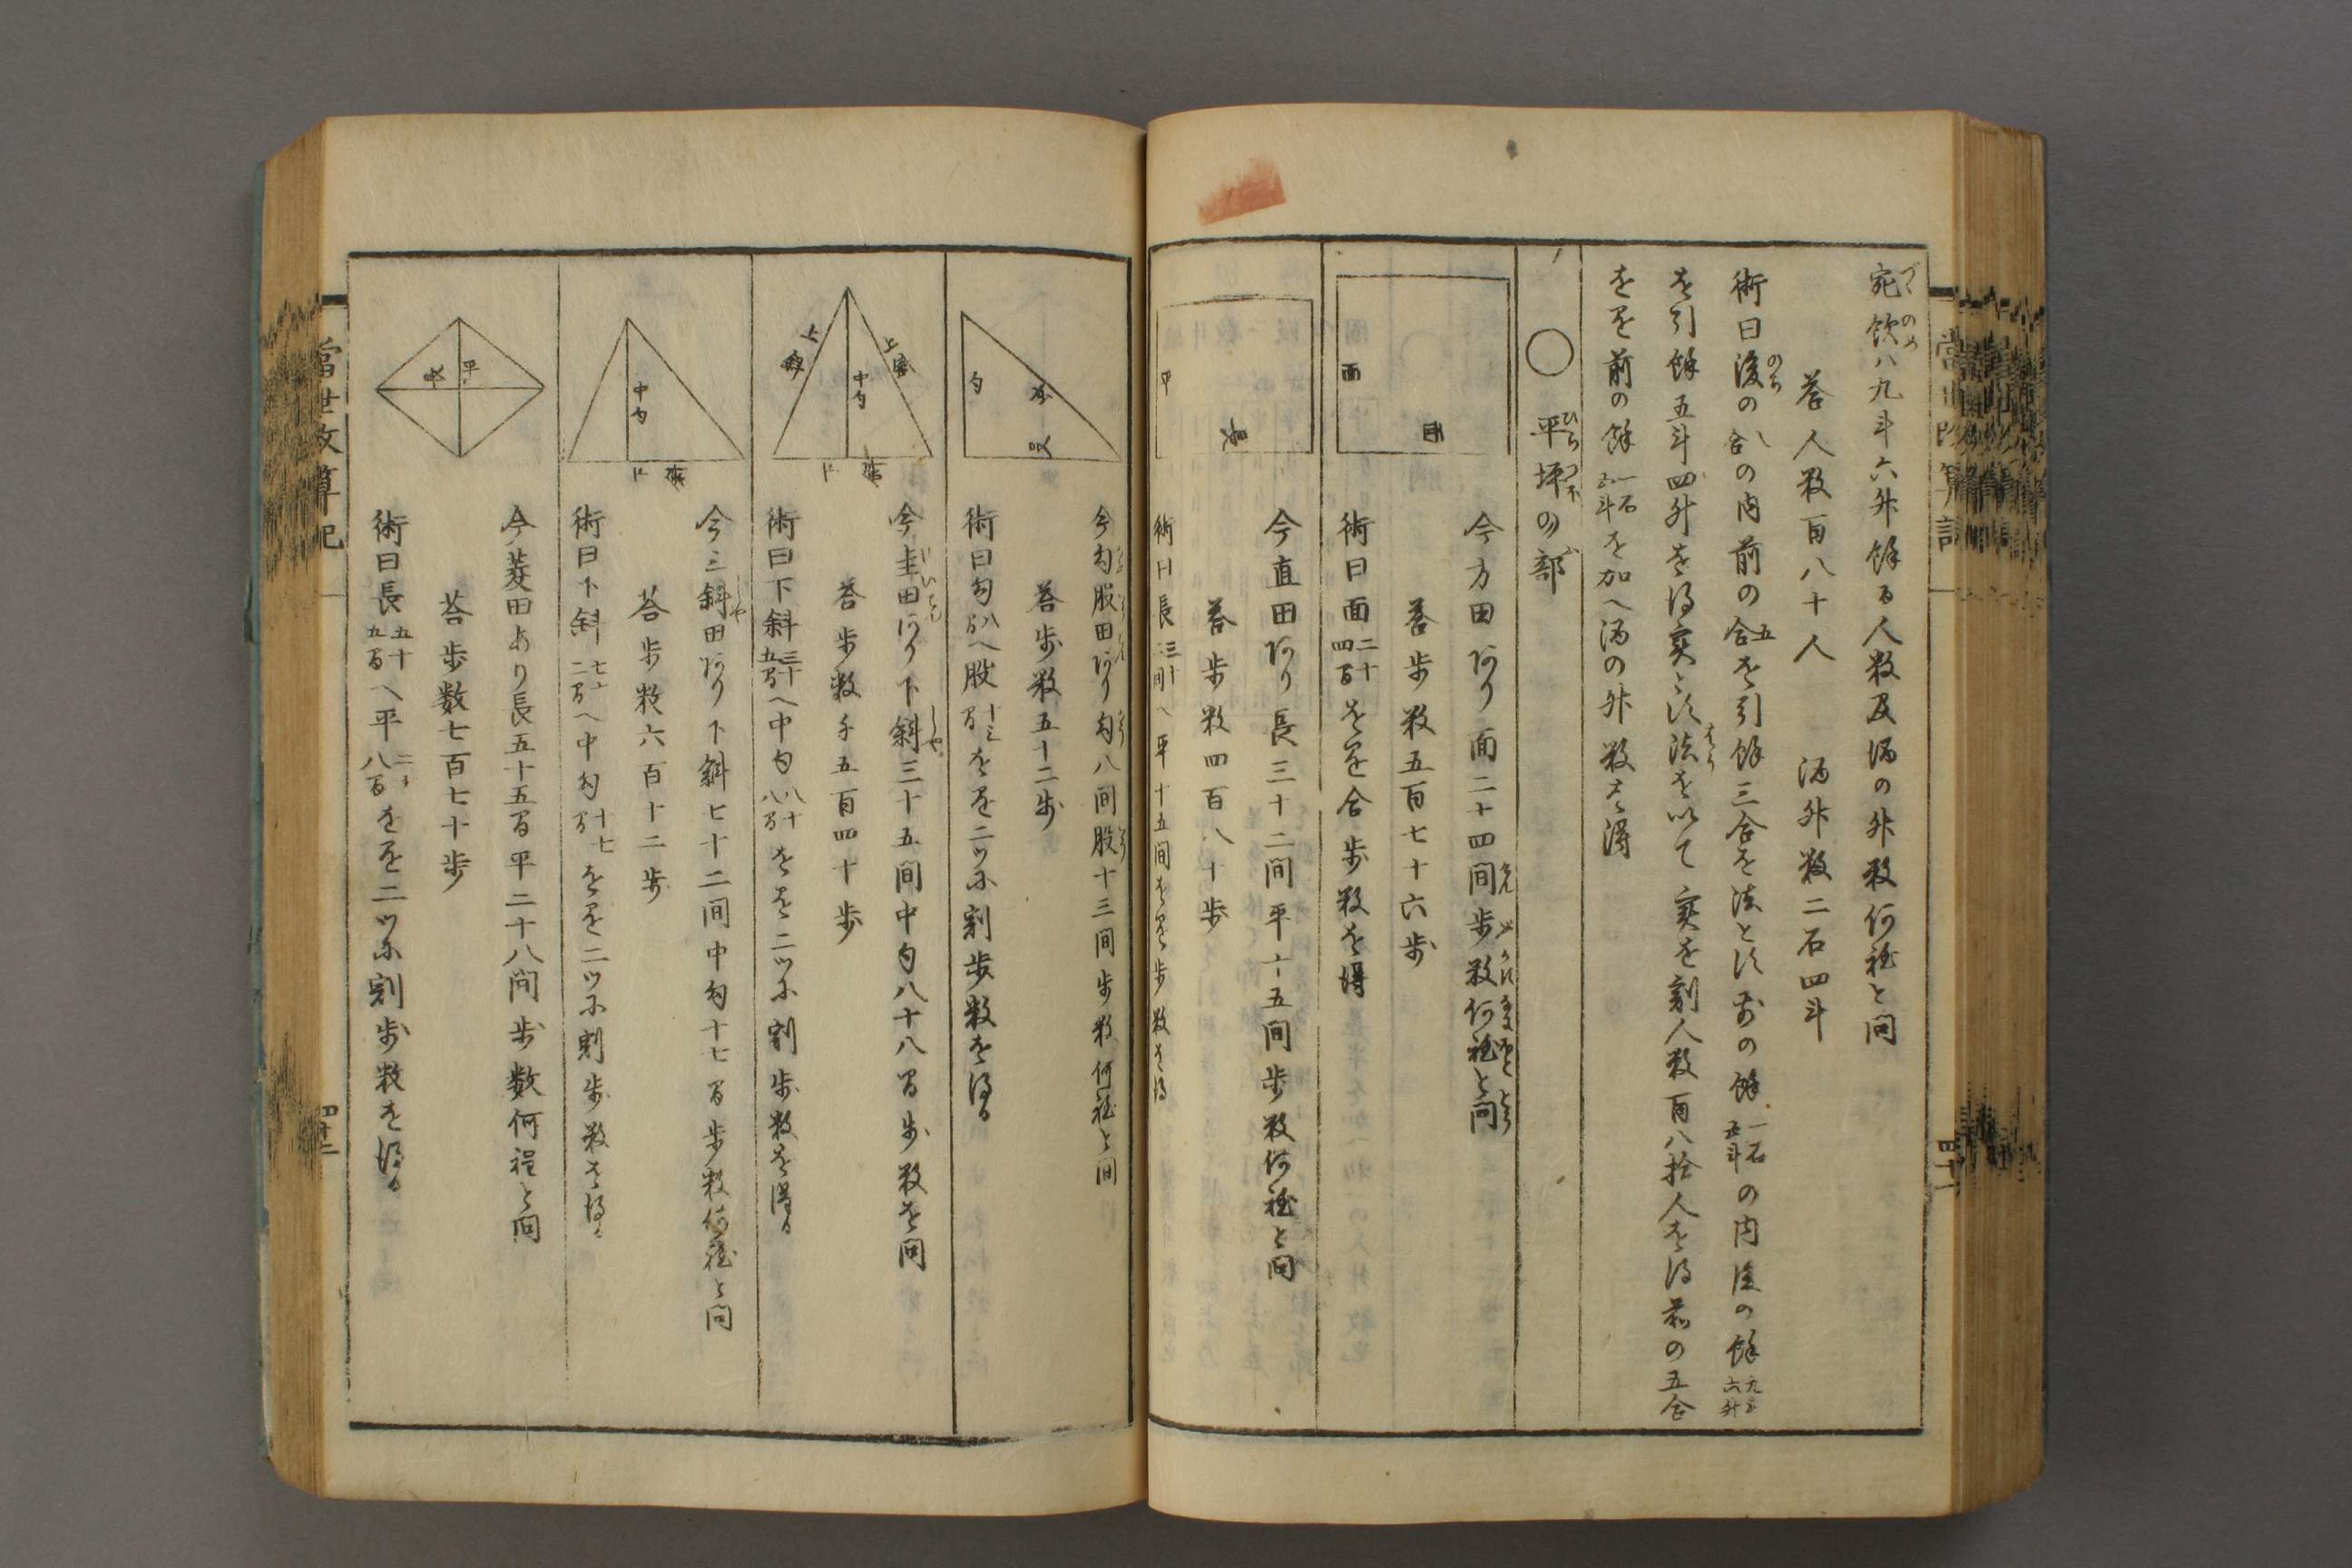 宛飲ハ九斗六升餘る人数及酒の升数何程と問
答人数百八十人　酒升数二石四斗
術曰後の八合の内前の五合を引餘三合を法とし前の餘一石五斗の内後の餘九斗六升
を引餘五斗四升を得実とし法を以て実を割人数百八拾人を得前の五合
を乗前の餘一石五斗を加へ酒の升数を得
○平坪の部
面
面
今方田あり面二十四間歩数何程と問
答歩数五百七十六歩
術曰面二十四間を自乗歩数を得
長
平
今直田あり長三十二間平十五間歩数何程と問
答歩数四百八十歩
術曰長三十二間へ平十五間を乗歩数を得
勾
股
今勾股田あり勾八間股十三間歩数何程と問
答歩数五十二歩
術曰勾八間へ股十三間を乗二ツに割歩数を得る
上斜
中勾
上斜
下斜
今圭田あり下斜三十五間中勾八十八間歩数を問
答歩数千五百四十歩
術曰下斜三十五間へ中勾八十八間を乗二ツに割歩数を得る
中勾
下斜
今三斜田あり下斜七十二間中勾十七間歩数何程と問
答歩数六百十二歩
術曰下斜七十二間へ中勾十七間を乗二ツに割歩数を得る
平
長
今菱田あり長五十五間平二十八間歩数何程と問
答歩数七百七十歩
術曰長五十五間へ平二十八間を乗二ツに割歩数を得る
當世改算記